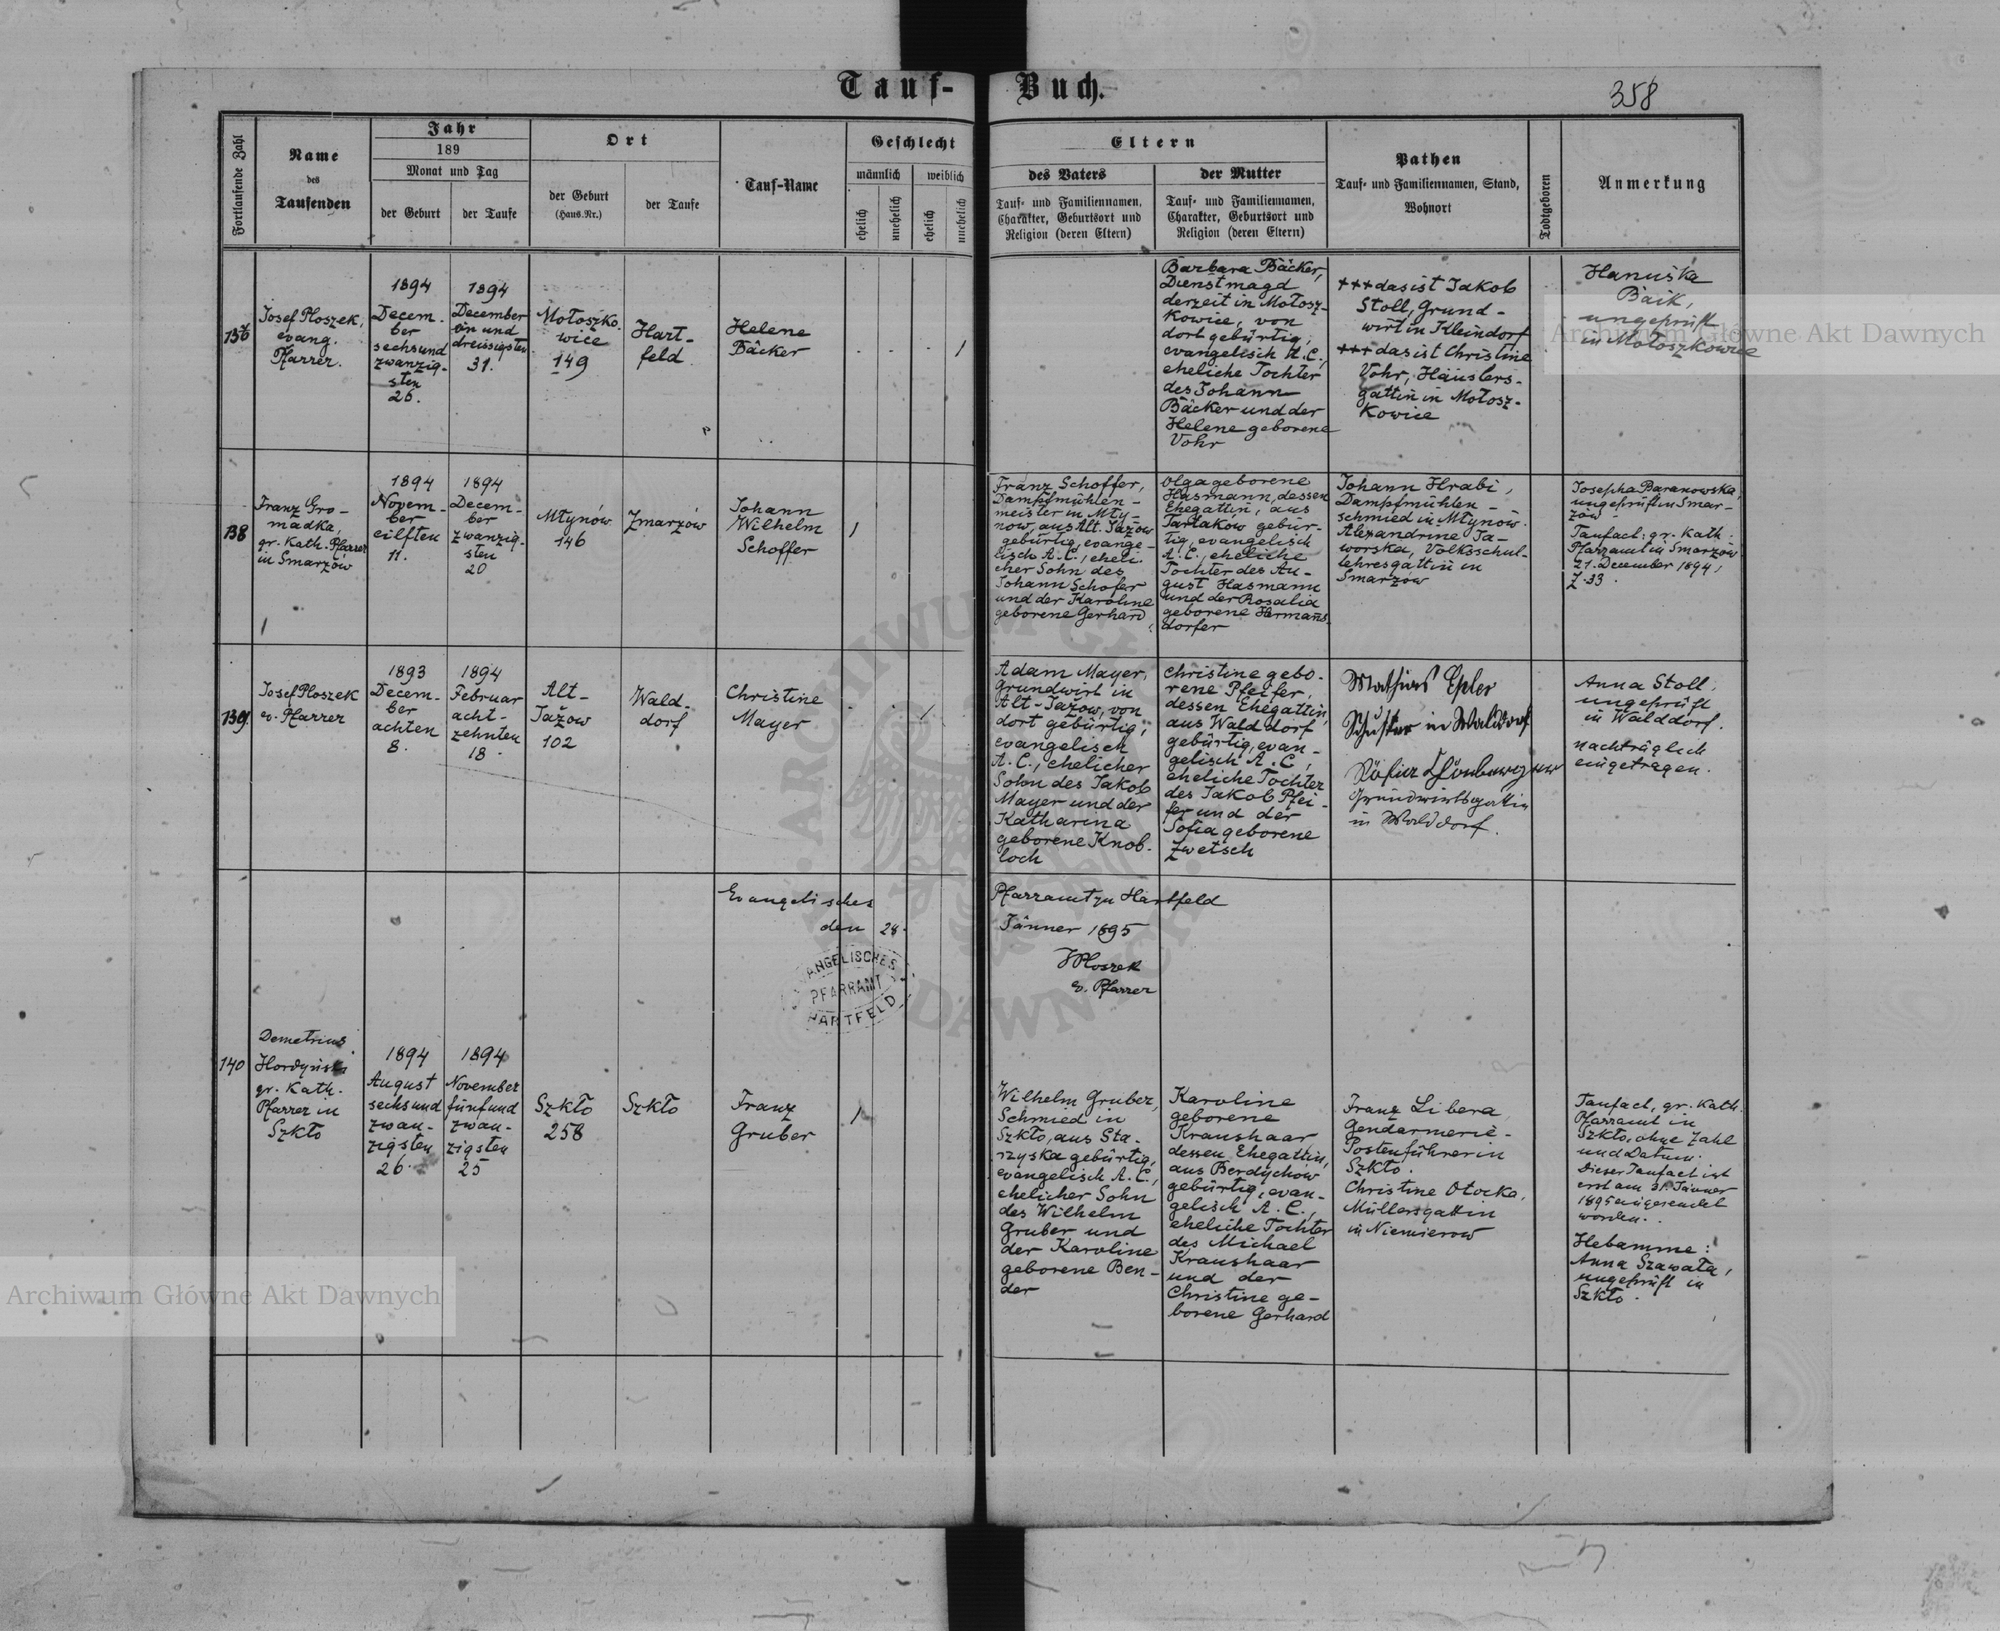 Tauf-Buch.
358
Fortlaufende Zahl
Name
des
Taufenden
Jahr
189
Monat und Tag
der Geburt
der Taufe
Ort
der Geburt
(Haus-Nr.)
der Taufe
Tauf-Name
Geschlecht
männlich
weiblich
ehelich
unehelich
ehelich
unehelich
Eltern
des Vaters
Tauf- und Familiennamen,
Charakter, Geburtsort und
Religion (deren Eltern)
der Mutter
Tauf- und Familiennamen,
Charakter, Geburtsort und
Religion (deren Eltern)
Pathen
Tauf- und Familiennamen, Stand,
Wohnort
Todtgeboren
Anmerkung
Josef Ploszek,
evang.
Pfarrer.
1894
Decem-
ber
sechsund
zwanzig-
sten
26.
1894
December
ein und
dreissigsten
31.
Mołoszko-
wice
149
Hart-
feld
Helene
Bäcker
1
Barbara Bäcker,
Dienstmagd
derzeit in Mołosz-
kowice, von
dort gebürtig,
evangelisch A.C.,
eheliche Tochter
des Johann
Bäcker und der
Helene geborene
Vohr
+++ das ist Jakob
Stoll, Grund-
wirt in Kleindorf
+++ das ist Christine
Vohr, Häuslers-
gattin in Mołosz-
kowice
Hanuśka
Baik,
ungeprüft
in Mołoszkowice
138
Franz Gro-
madka,
gr. Kath. Pfarrer
in Smarzów
1894
Novem-
ber
eilften
11.
1894
Decem-
ber
zwanzig-
sten
20
Młynów
146
Zmarzów
Johann
Wilhelm
Schoffer
1
Franz Schoffer,
Dampfmühlen-
meister in Mły-
now, aus Alt Jażow
gebürtig, evange-
lisch A.C., eheli-
cher Sohn des
Johann Schofer
und der Karoline
geborene Gerhard
Olga geborene
Hasmann, dessen
Ehegattin, aus
Tartakow gebür-
tig, evangelisch
A.C., eheliche
Tochter des Au-
gust Hasmann
und der Rosalia
geborene Hermans-
dorfer
Johann Hrabi,
Dampfmühlen-
schmied in Młynow.
Alexandrine Ja-
worska, Volksschul-
lehresgattin in
Smarzów
Josepha Baranowska,
ungeprüft in Smar-
zów
Taufact: gr. Kath.
Pfarramt in Smarzów
21. December 1894,
Z. 33.
139.
Josef Ploszek
ev. Pfarrer
1893
Decem-
ber
achten
8.
1894
Februar
acht-
zehnten
18.
Alt-
Jażow
102
Wald-
dorf
Christine
Mayer
1
Adam Mayer,
Grundwirt in
Alt-Jażow, von
dort gebürtig,
evangelisch
A.C., ehelicher
Sohn des Jakob
Mayer und der
Katharina
geborene Knob-
loch
Christine gebo-
rene Pfeifer,
dessen Ehegattin,
aus Walddorf
gebürtig, evan-
gelisch A.C,
eheliche Tochter
des Jakob Pfei-
fer und der
Sofia geborene
Zwetsch
Mathias Epler
Schuster in Walddorf
Grundwirtsgattin
in Walddorf.
Anna Stoll,
ungeprüft
in Walddorf.
Nachträglich
eingetragen.
Evangelisches Pfarramt zu Hartfeld
den 28. Jänner 1895
JPloszek
ev. Pfarrer
EVANGELISCHES
PFARRAMT
HARTFELD
140
Demetrius
Hordyński
gr. Kath.
Pfarrer in
Szkło
1894
August
sechsund
zwan-
zigsten
26.
1894
November
fünfund
zwan-
zigsten
25
Szkło
258
Szkło
Franz
Gruber
1
Wilhelm Gruber,
Schmied in
Szkło, aus Sta-
rzyska gebürtig,
evangelisch A.C.,
ehelicher Sohn
des Wilhelm
Gruber und
der Karoline
geborene Ben-
der
Karoline
geborene
Kraushaar
dessen Ehegattin,
aus Berdychów
gebürtig, evan-
gelisch A.C.,
eheliche Tochter
des Michael
Kraushaar
und der
Christine ge-
borene Gerhard
Franz Libera
Gendarmerie-
Postenführer in
Szkło.
Christine Otocka,
Müllersgattin
in Niemierow
Taufact, gr. Kath.
Pfarramt in
Szkło, ohne Zahl
und Datum.
Dieser Taufact ist
erst am 31. Jänner
1895 eingesendet
worden.
Hebamme:
Anna Szawała,
ungeprüft in
Szkło.
Archiwum Główne Akt Dawnych
Archiwum Główne Akt Dawnych